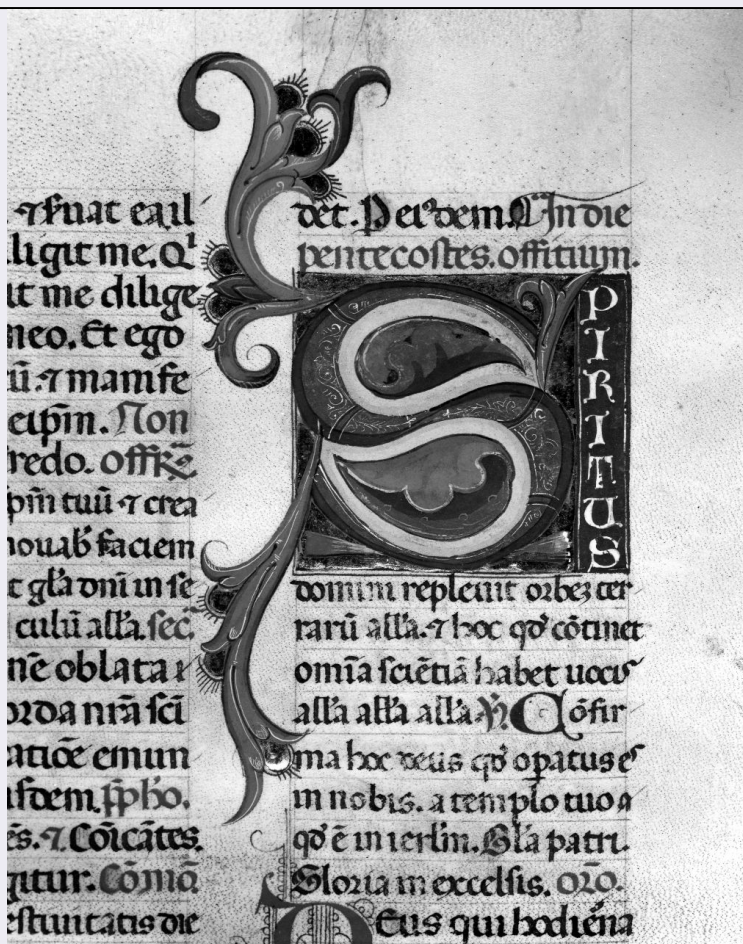 ⁊ ſeruat ea il
ligit me. Q
it me dilige
meo. Et ego
ū. ⁊ manife
cip̄m. Non
redo. offr̄e
ſpm̄ tuū ⁊ crea
nouab' faciem
t gl̄a dn̄i in ſe
culū all̄a. ſec̄.
ne oblata
orda nr̄a ſci
atiōe emun
p̄ho.
es. ⁊. Cōicātes.
gitur. Cōmō
eſtiuitatis die
det. P eiꝰdem. In die
pentecoſtes. offitium.
SPIRITUS
domini repleuit orbeꝫ ter
rarū all̄a. ⁊ hoc qd' cōtinet
omīa ſciētiā habet uocis
all̄a all̄a all̄a. Cōfir
ma hoc deus qd' opatus eſ
in nobis. a templo tuo
qd' ē in ierlm̄. Gl̄a patri.
Gloria in excelſis. or̄o.
Deus qui hodiēna